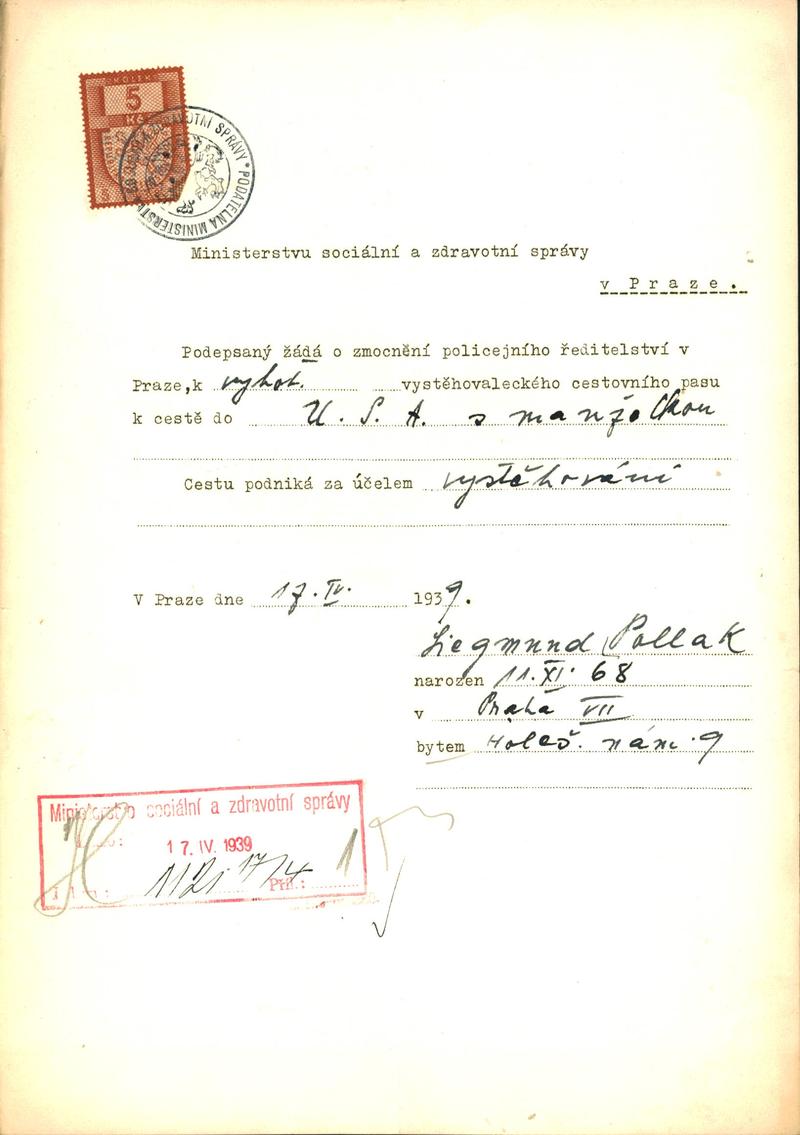 KOLEK
5
Kč
PODATELNA MINISTERSTVA SOCIÁLNÍ A ZDRAVOTNÍ SPRÁVY
Ministerstvu sociální a zdravotní správy
v Praze.
Podepsaný žádá o zmocnění policejního ředitelství v
Praze,k vyhot. vystěhovaleckého cestovního pasu
k cestě do U. S. A. s manželkou
Cestu podniká za účelem vystěhování
V Praze dne 17. IV. 1939.
Siegmund Pollak
narozen 11. XI. 68
v Praha VII
bytem Holeš. nám. 9
Ministerstvo sociální a zdravotní správy
17. IV. 1939
1121 17/4 Příl.: 1